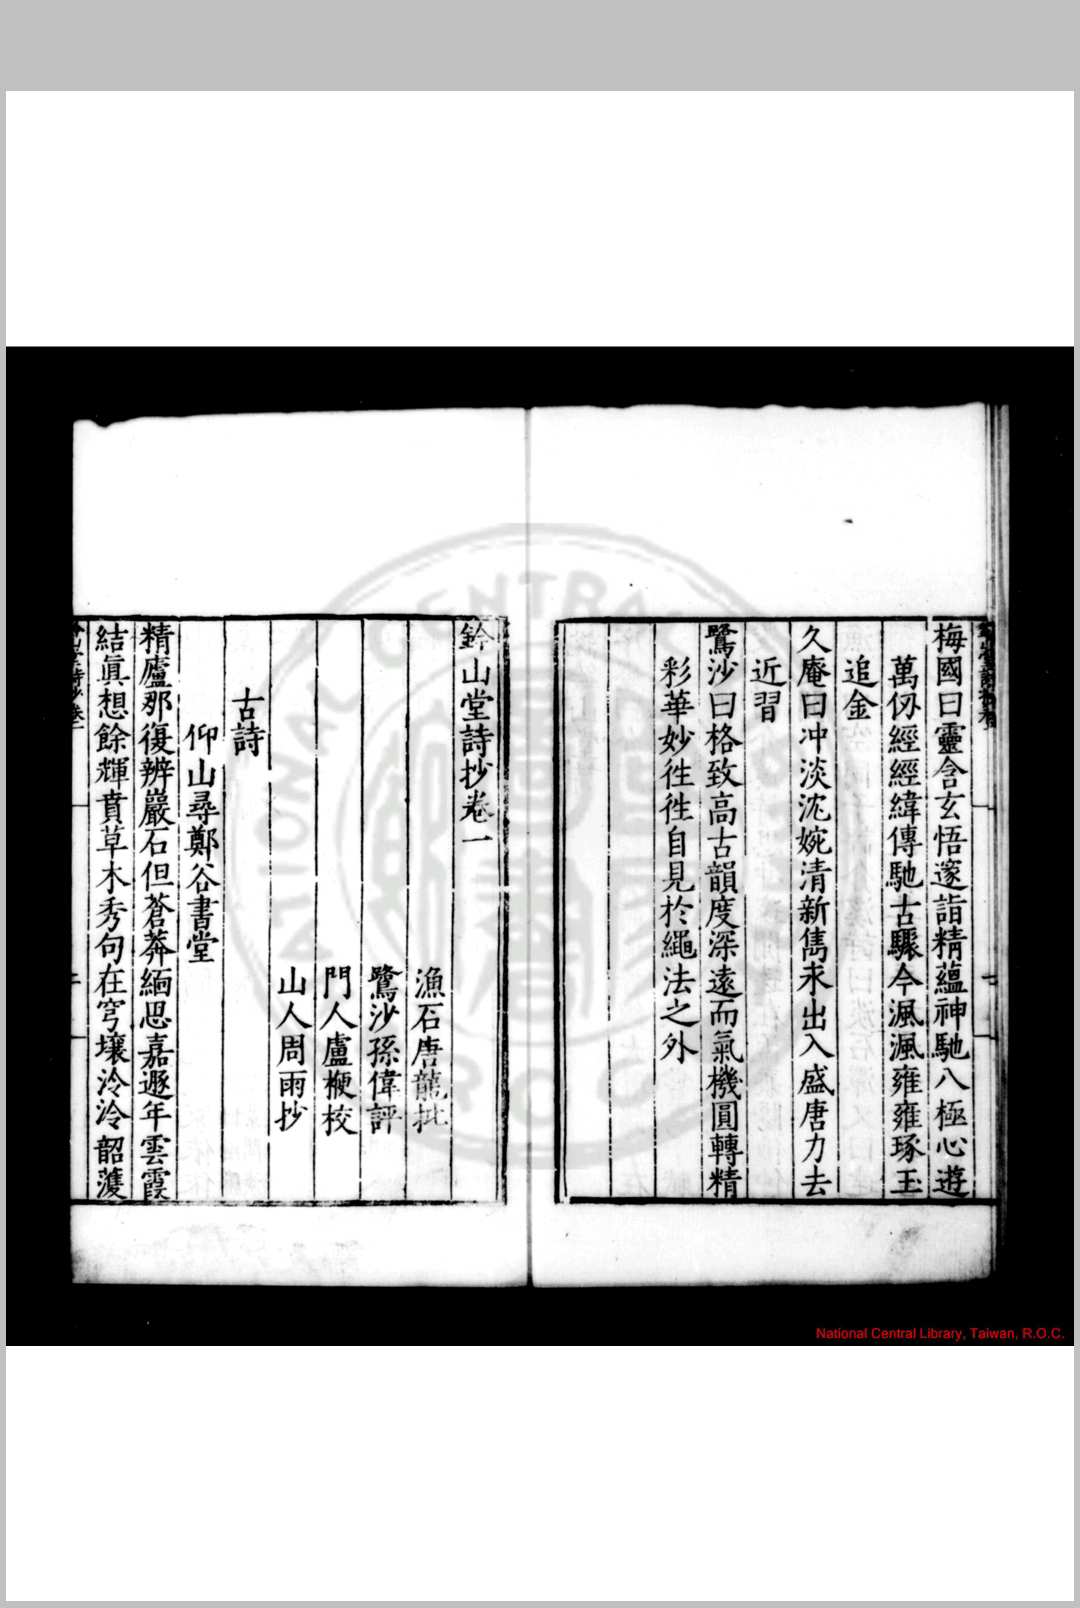 梅國曰靈含玄悟邃詣精蘊神馳八極心遊
萬仭經經緯傳馳古驟今渢渢雍雍琢玉
追金
久庵曰冲淡沈婉清新雋永出入盛唐力去
近習
鷺沙曰格致高古韻度深遠而氣機圓轉精
彩華妙徃徃自見於繩法之外
鈐山堂詩抄卷一
漁石唐龍批
鷺沙孫偉評
門人盧楩校
山人周雨抄
古詩
仰山尋鄭谷書堂
精廬那復辨巖石但蒼莽緬思嘉遯年雲霞
結眞想餘輝賁草木秀句在穹壤泠泠韶濩
National Central Library, Taiwan, R.O.C.